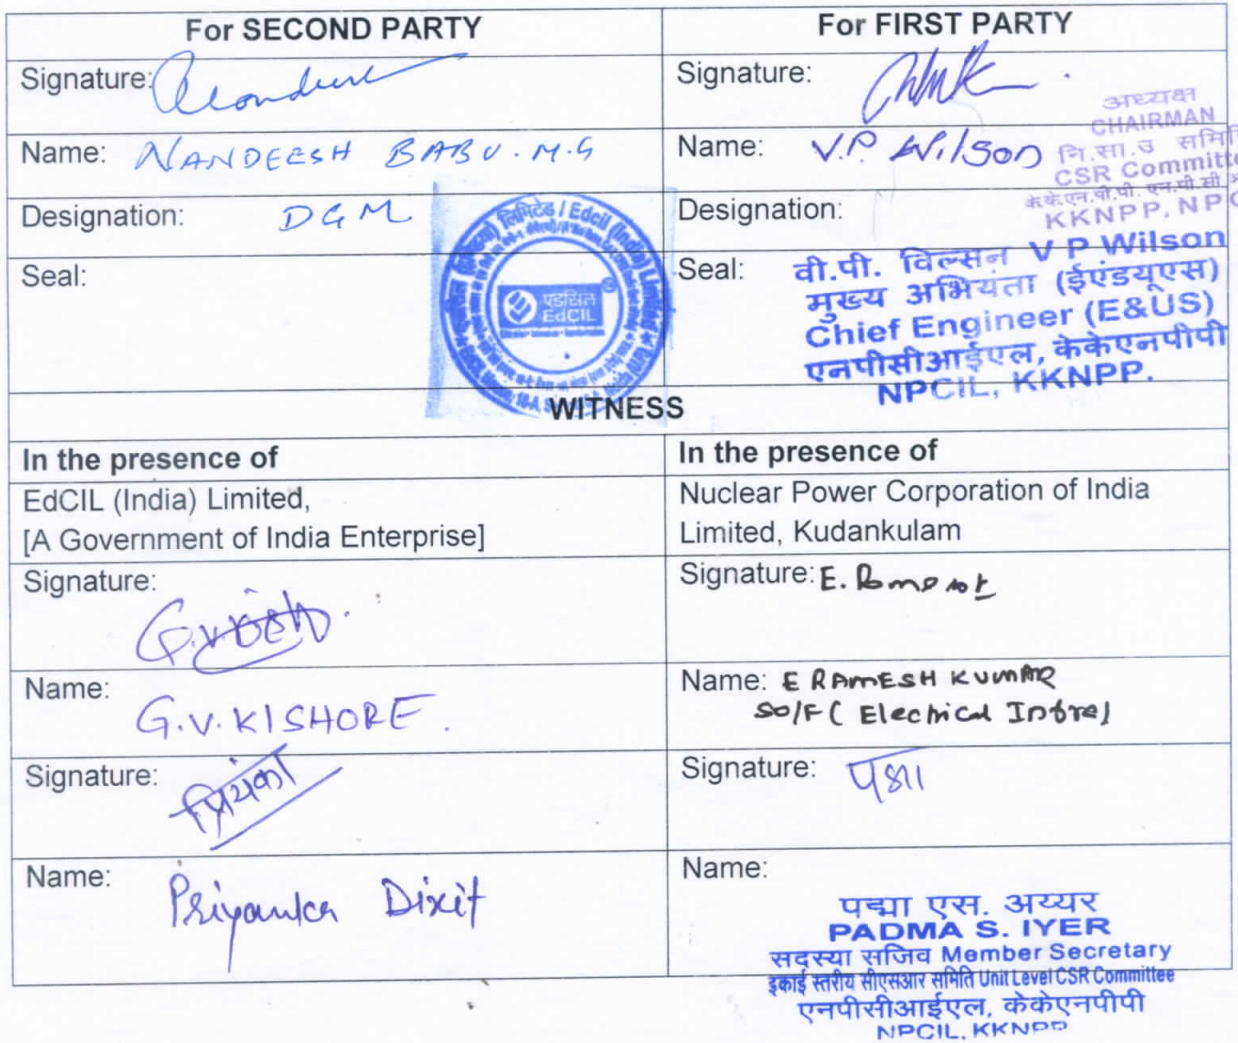 For SECOND PARTY
For FIRST PARTY
Signature:
Signature:
अध्यक्ष
CHAIRMAN
नि.सा.उ समिति
CSR Committe
KKNPP, NPC
Name: NANDEESH BABU. M.G
Name: V.P. Wilson
Designation: DGM
Designation:
Seal:
लिमिटेड / Edcil (India) Limited
एडसिल
EdCIL
Seal:
वी.पी. विल्सन V P Wilson
मुख्य अभियंता (ईएंडयूएस)
Chief Engineer (E&US)
एनपीसीआईएल, केकेएनपीपी
NPCIL, KKNPP.
WITNESS
In the presence of
In the presence of
EdCIL (India) Limited,
[A Government of India Enterprise]
Nuclear Power Corporation of India
Limited, Kudankulam
Signature:
Signature: E.
Name: G.V. KISHORE.
Name: E RAMESH KUMAR
SO/F ( Electrical
Signature: प्रियंका
Signature: पद्मा
Name: Priyanka Dixit
Name:
पद्मा एस. अय्यर
PADMA S. IYER
सदस्या सजिव Member Secretary
इकाई स्तरीय सीएसआर समिति Unit Level CSR Committee
एनपीसीआईएल, केकेएनपीपी
NPCIL, KKNPP